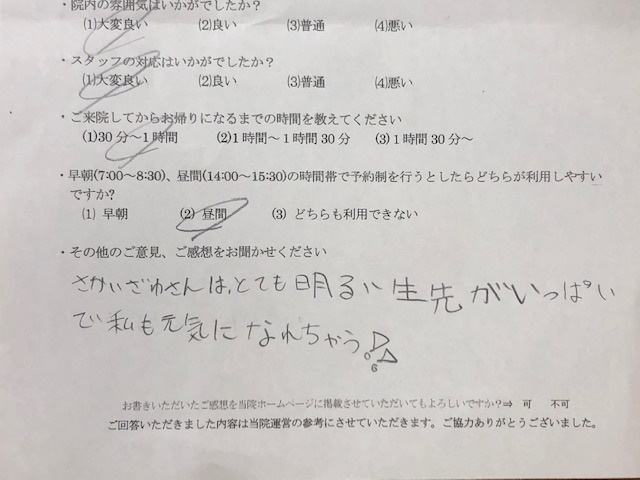 ・院内の雰囲気はいかがでしたか?
(1)大変良い (2)良い (3)普通 (4)悪い
・スタッフの対応はいかがでしたか?
(1)大変良い (2)良い (3)普通 (4)悪い
・ご来院してからお帰りになるまでの時間を教えてください
(1)30分～1時間 (2)1時間～1時間30分 (3)1時間30分～
・早朝(7:00～8:30)、昼間(14:00～15:30)の時間帯で予約制を行うとしたらどちらが利用しやすい
ですか?
(1) 早朝 (2) 昼間 (3) どちらも利用できない
・その他のご意見、ご感想をお聞かせください
さかいざわさんは、とても明るい生先がいっぱい
で私も元気になれちゃう。!!
お書きいただいたご感想を当院ホームページに掲載させていただいてもよろしいですか?⇒ 可 不可
ご回答いただきました内容は当院運営の参考にさせていただきます。ご協力ありがとうございました。